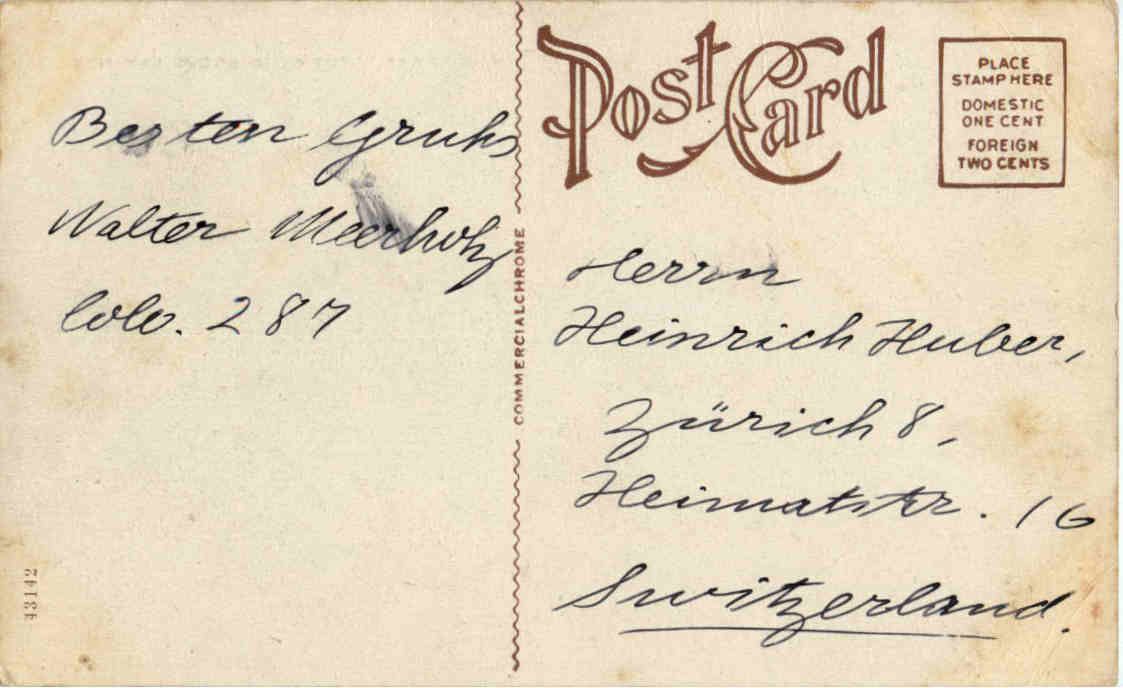 Besten Gruhs
Walter Meerholz
Colo. 287
43142
COMMERCIALCHROME
Post Card
PLACE
STAMP HERE
DOMESTIC
ONE CENT
FOREIGN
TWO CENTS
Herrn
Heinrich Huber,
Zürich 8,
Heimatstr. 16
Switzerland.